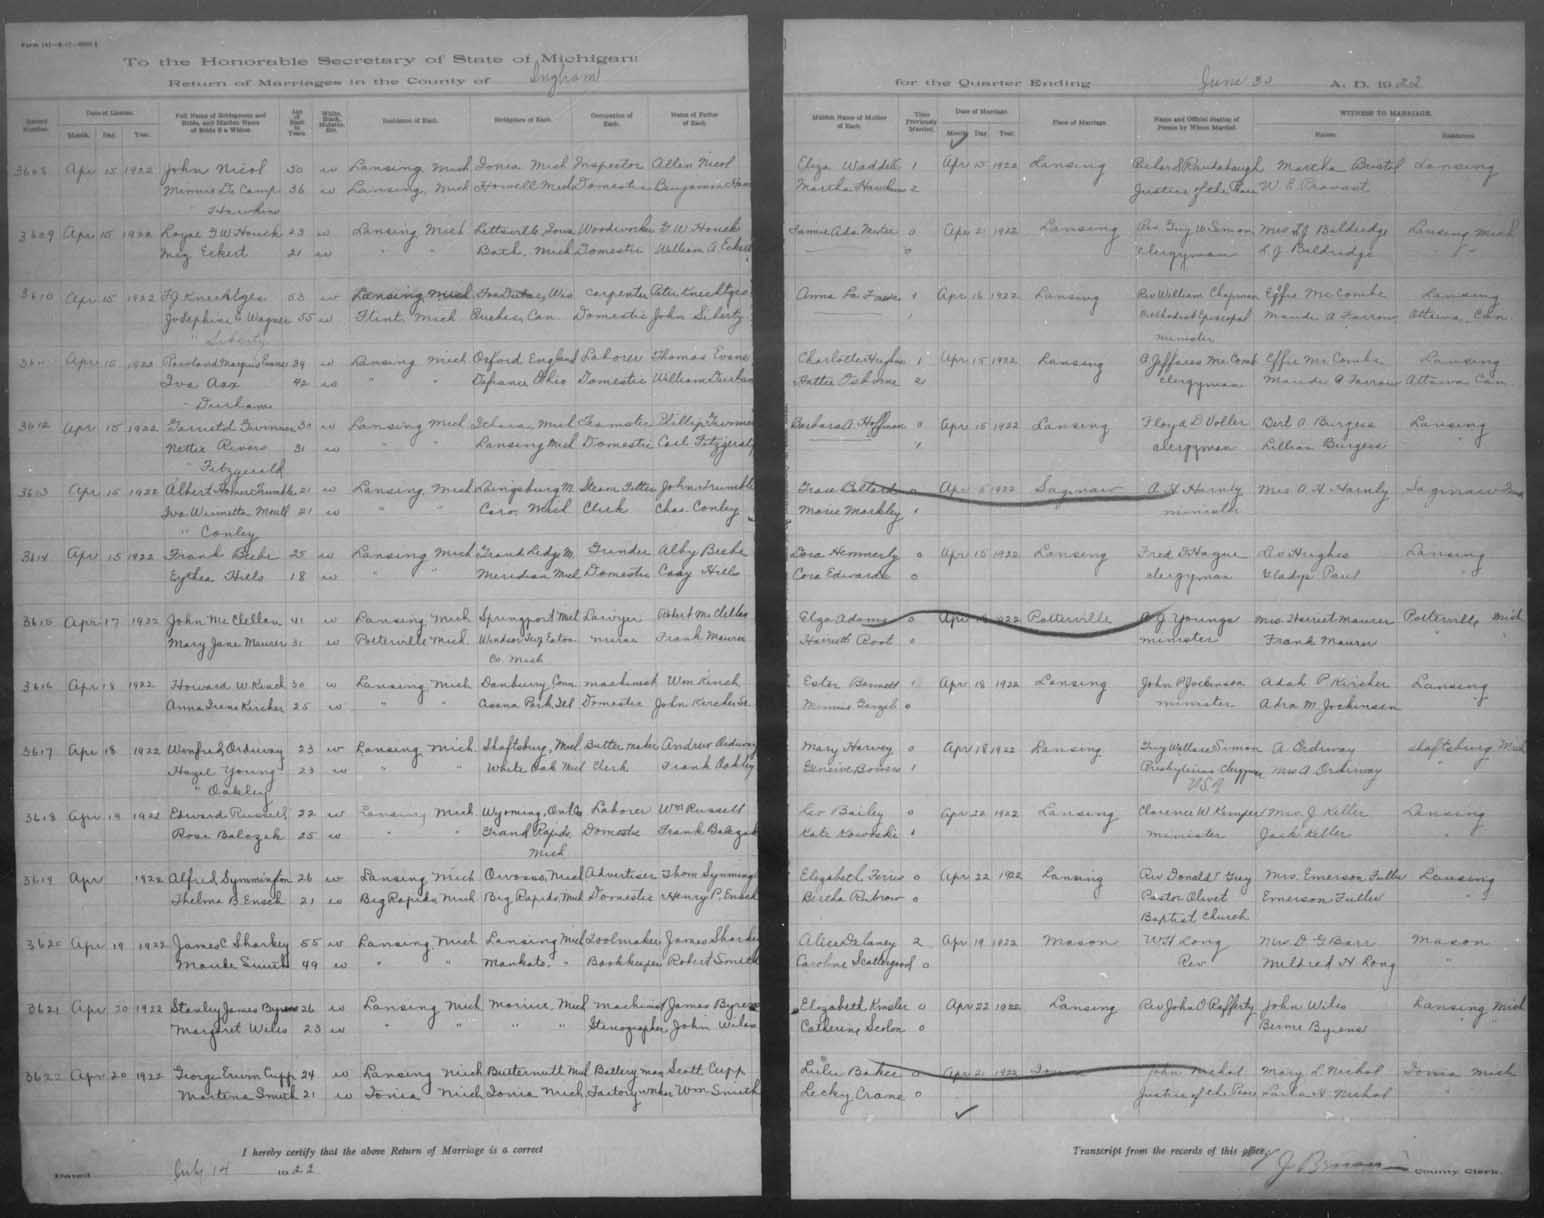 To the Honorable Secretary of State of Michigan:
Return of Marriages in the County of Ingham
for the Quarter Ending June 30 A. D. 1922
Record Number. Date of License. Month. Day. Year. Full Name of Bridegroom and Bride, and Maiden Name of Bride if a Widow. Age of Each in Years. White, Black, Mulatto, Etc. Residence of Each. Birthplace of Each. Occupation of Each. Name of Father of Each. Maiden Name of Mother of Each. Times Previously Married. Date of Marriage. Month. Day. Year. Place of Marriage. Name and Official Station of Person by Whom Married. WITNESS TO MARRIAGE. Names. Residence.
3608 Apr 15 1922 John Nicol 50 w Lansing Mich Ionia Mich Inspector Allen Nicol Eliza Waddell 1 Apr 15 1922 Lansing Martha Bristol Lansing
Minnie De Camp 36 w Lansing, Mich Howell Mich Domestic Benjamin Martha Hawkins 2 Justice of the Peace W. E. Provost
Hawkins
3609 Apr 15 1922 Royal G W Houck 23 w Lansing Mich Iowa Woodworker G. W Houck 0 Apr 2 1922 Lansing Rev Guy W Simon Mrs L J Baldredge Lansing Mich
Meg Eckert 21 w " " Bath, Mich Domestic William A Eckert 0 Clergyman L J Baldredge " "
3610 Apr 15 1922 F J Knechtges 53 w Lansing Mich Wis Carpenter Peter Knechtges Anna La Fave 1 Apr 16 1922 Lansing Rev William Chapman Effie McCombe Lansing
Josephine Wagner 55 w Flint Mich Quebec, Can Domestic John Siberty 1 Methodist Episcopal Maude A Farrow Ottawa Can.
" Siberty minister
3611 Apr 15 1922 Evans 39 w Lansing Mich Oxford England Laborer Thomas Evans Charlotte Hughes 1 Apr 15 1922 Lansing A Jeffares McCombe Effie McCombe Lansing
Iva Asx 42 w " " Defiance Ohio Domestic William Durham Hattie Osborne 2 Clergyman Maude A Farrow Ottawa Can.
" Durham
3612 Apr 15 1922 30 w Lansing Mich Ithaca, Mich Teamster Phillip Barbara A. Hoffman 0 Apr 15 1922 Lansing Floyd D Voller Bert A Burgess Lansing
Nettie Rivers 31 w " " Lansing Mich Domestic Carl Fitzgerald 1 Clergyman Lillian Burgess "
" Fitzgerald
3613 Apr 15 1922 Albert Homer Trumble 21 w Lansing Mich Laingsburg M. Steam Fitter John Trumble Grace Pollard 0 Apr 15 1922 Saginaw A H Harnly Mrs A H Harnly Saginaw
Iva Winnetta 21 w " " Caro, Mich Clerk Chas. Conley Marie Markley 1 minister
" Conley
3614 Apr 15 1922 Frank Beebe 25 w Lansing Mich Grand Ledge M. Grinder Alby Beebe Dora Hemmerly 0 Apr 15 1922 Lansing Fred F Hague Hughes Lansing
Hills 18 w " " Meridian Mich Domestic Hills Cora Edwards 0 Clergyman Gladys Paul "
3615 Apr 17 1922 John McClellan 41 w Lansing Mich Springport Mich Lawyer Robert McClellan Eliza Adams 0 Apr 1922 Potterville A J Youngs Mrs. Harriet Maurer Potterville Mich
Mary Jane Maurer 31 w Potterville Mich. Windsor Twp Eaton nurse Frank Maurer Harriett Root 0 minister Frank Maurer " "
Co. Mich
3616 Apr 18 1922 Howard W Kinch 30 w Lansing Mich Danbury, Conn. machinist Wm Kinch Ester Bennett 1 Apr 18 1922 Lansing John P Jockinsen Adah P Kircher Lansing
Anna Irene Kircher 25 w " " Park, Ill Domestic John Kircher Sr. Minnie 0 minister Adra M. Jockinsen
3617 Apr 18 1922 Winfred Ordway 23 w Lansing Mich Shaftsburg, Mich Butter maker Andrew Ordway Mary Harvey 0 Apr 18 1922 Lansing Guy Wallace Simon A Ordway Shaftsburg Mich
Hazel Young 23 w " " White Oak Mich Clerk Frank Oakley Genevive Bowers 1 Presbyterian Clergyman Mrs A Ordway "
" Oakley USA
3618 Apr 19 1922 Edward Russell 22 w Lansing Mich Wyoming, Ont Laborer Wm Russell Bailey 0 Apr 22 1922 Lansing Clarence W Kemper Mrs. J. Keller Lansing
Rose Balozak 25 w " " Grand Rapids Domestic Frank Balozak Kate 1 minister Jack Keller "
Mich
3619 Apr 1922 Alfred Symmington 26 w Lansing Mich Owosso, Mich Advertiser Thom Symmington Elizabeth Ferris 0 Apr 22 1922 Lansing Rev Donald T Grey Mrs. Emerson Fuller Lansing
Thelma B. Ensch 21 w Big Rapids, Mich Big Rapids, Mich Domestic Henry P. Ensch Bertha 0 Pastor Olivet Emerson Fuller "
Baptist Church
3620 Apr 19 1922 James C Sharkey 55 w Lansing Mich Lansing Mich Toolmaker James Sharkey Alice Delaney 2 Apr 19 1922 Mason W H Long Mrs. D G Barr Mason
Maude Smith 49 w " " Mankato, " Bookkeeper Robert Smith Caroline Scattergood 0 Rev. Mildred H Long "
3621 Apr 20 1922 Stanley James Byrens 26 w Lansing Mich Morice, Mich machinist James Byrens Elizabeth Kessler 0 Apr 22 1922 Lansing Rev John O Rafferty John Wiles Lansing Mich
Margaret Wiles 23 w " " " " Stenographer John Wiles Catherine Scolon 0 Byrens
3622 Apr 20 1922 George Ervin Cupp 24 w Lansing Mich Butternutt Mich Battery man Scott Cupp Lulu Baker 0 Apr 21 1922 Ionia John Nichol Mary L Nichol Ionia Mich
Martina Smith 21 w Ionia Mich Ionia Mich, Factory worker Wm Smith Lecky Crane 0 Justice of the Peace H Nichol "
I hereby certify that the above Return of Marriage is a correct Transcript from the records of this office.
Dated July 14 1922 County Clerk.